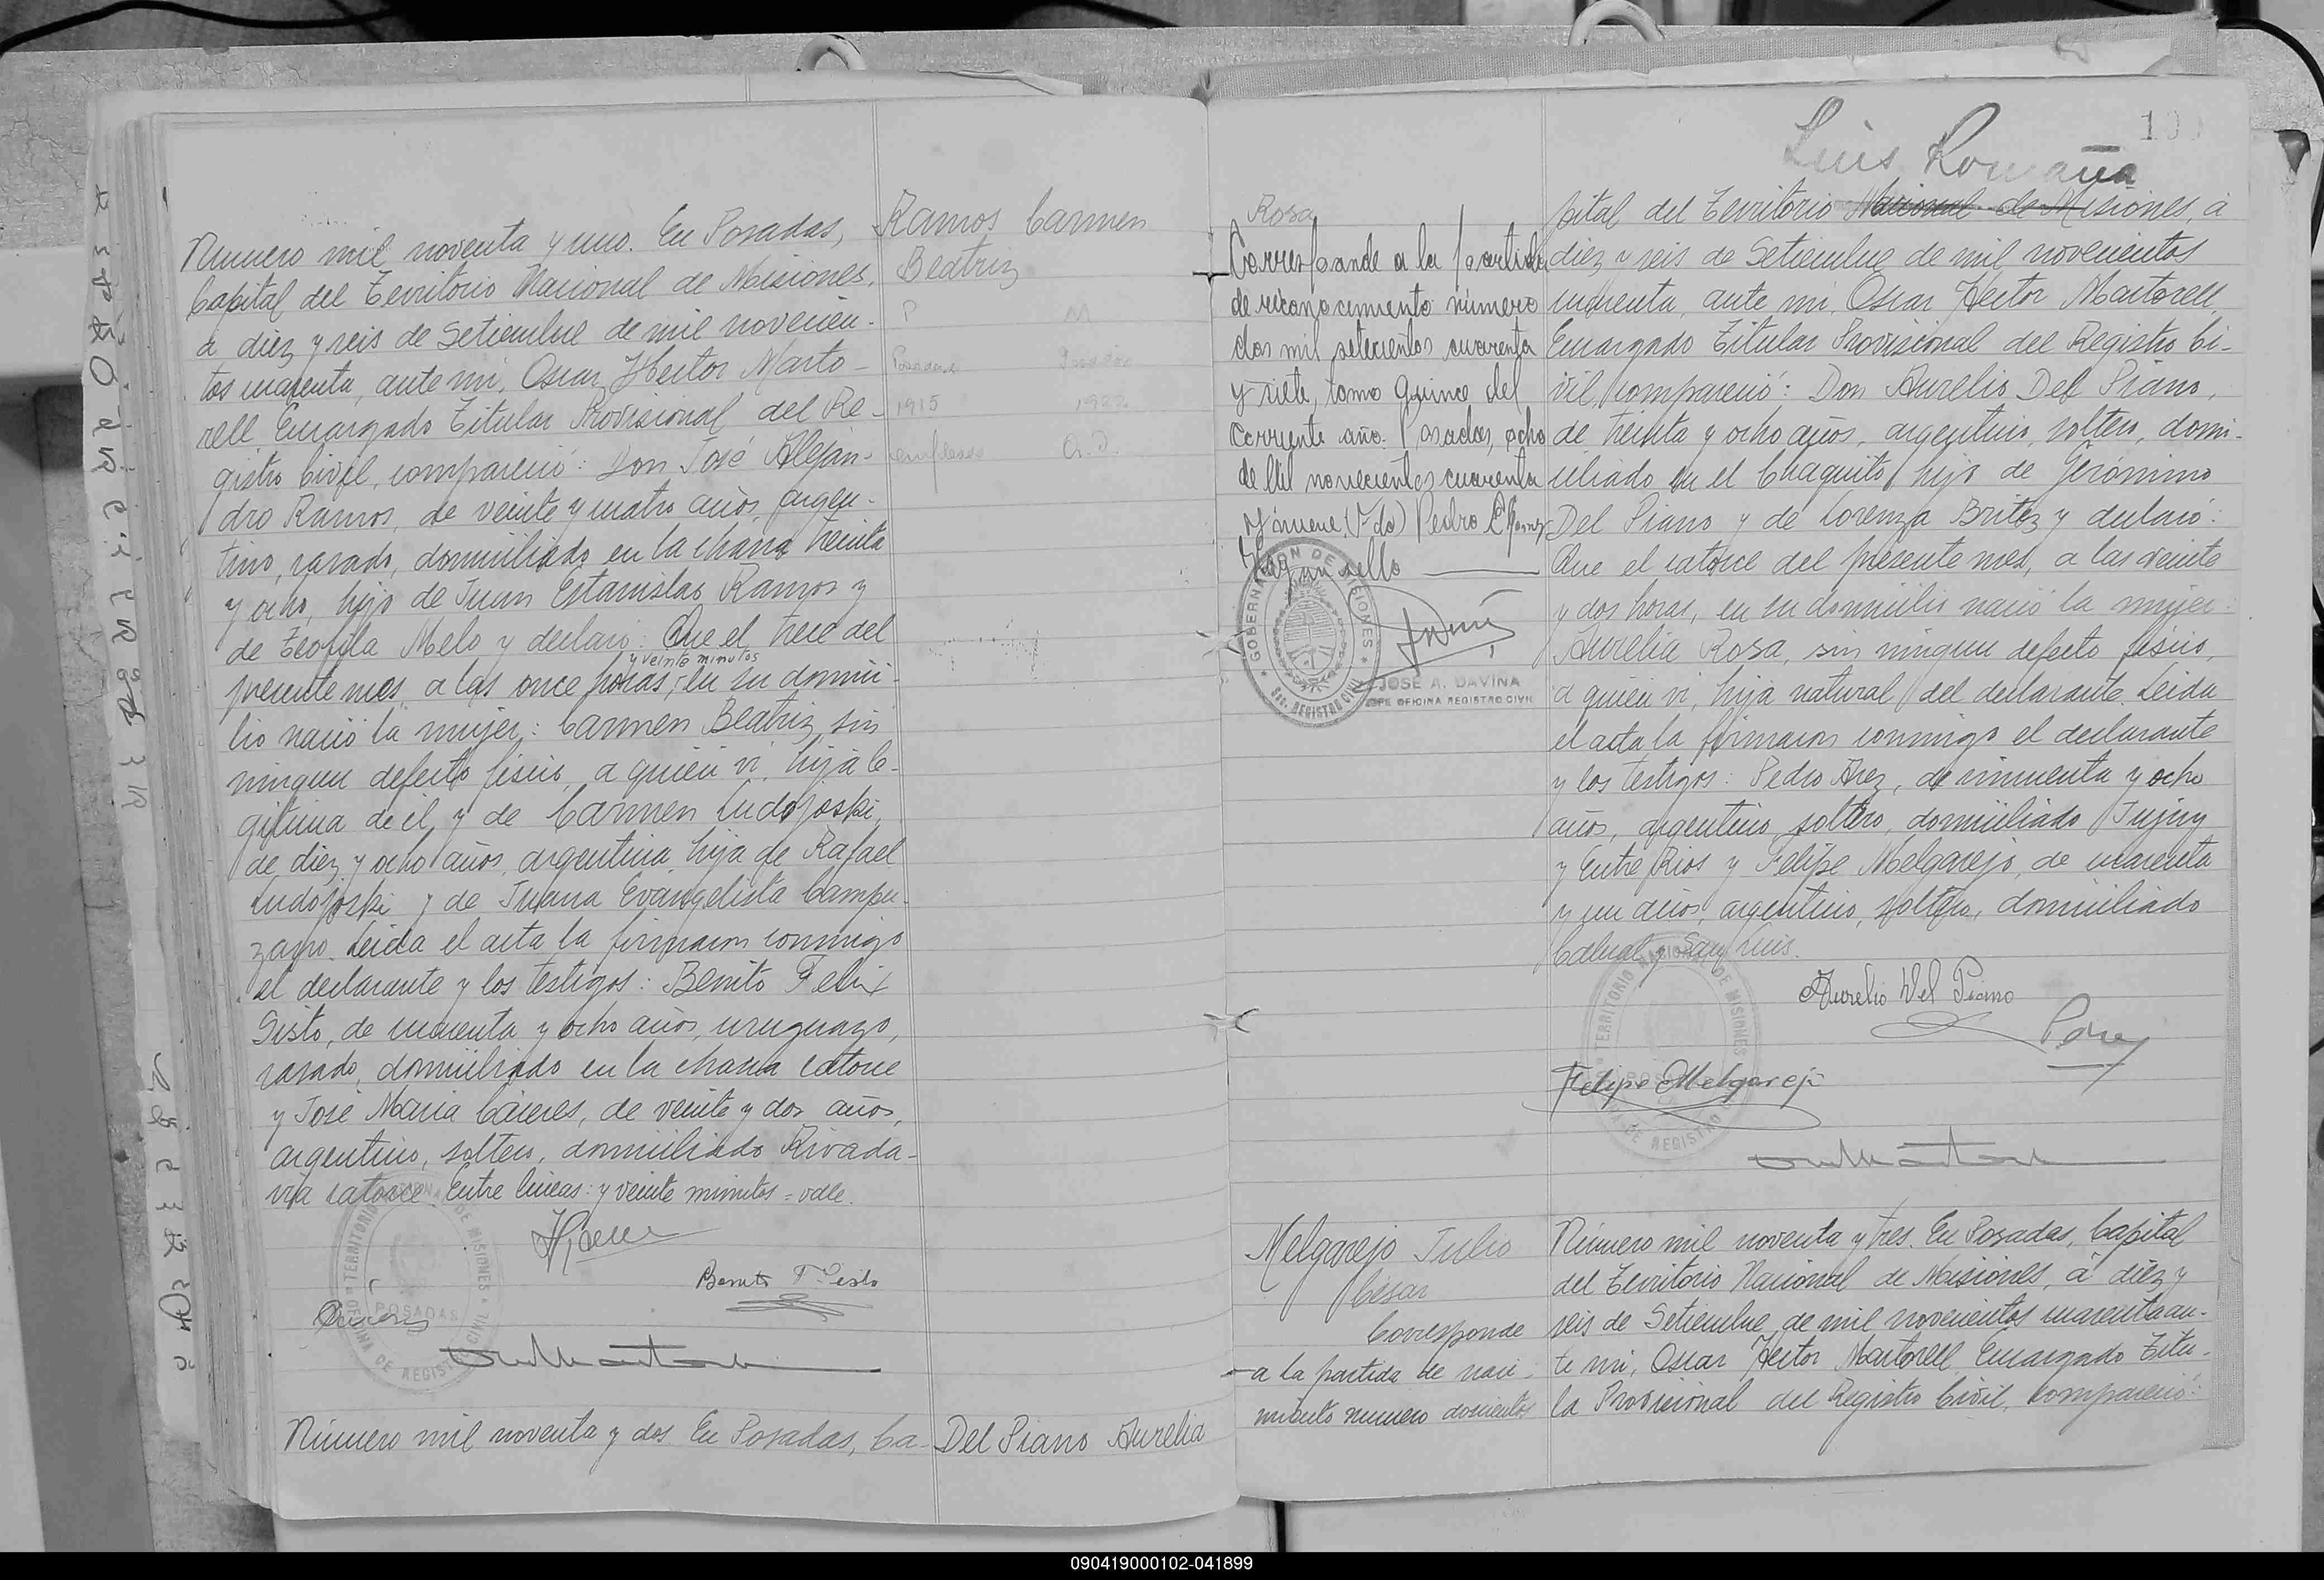 Número mil noventa y uno. En Posadas,
Capital del Territorio Nacional de Misiones,
a diez y seis de Setiembre de mil novecien-
tos cuarenta, ante mi, Oscar Hector Marto-
rell Encargado Titular Provisional del Re-
gistro Civil, compareció: Don José Alejan-
dro Ramos, de veinte y cuatro años, argen-
tino, casado, domiciliado en la chacra treinta
y ocho, hijo de Juan Estanislao Ramos y
de Teofila Melo y declaró: Que el trece del
y veinte minutos
presente mes, a las once horas, en su domici-
lio nació la mujer: Carmen Beatriz, sin
ningun defecto físico, a quien vi, hija le-
gitima de él y de Carmen Ludojoski,
de diez y ocho años, argentina, hija de Rafael
Ludojoski y de Juana Evangelista Campu-
zano. Leida el acta la firmaron conmigo
el declarante y los testigos: Benito Felix
Sisto, de cuarenta y ocho años, uruguayo,
casado, domiciliado en la chacra catorce
y José Maria Cáceres, de veinte y dos años,
argentino, soltero, domiciliado Rivada-
via catorce. Entre lineas: y veinte minutos = vale.
Ramos Carmen
Beatriz
P M
Posadas
1915 1922
empleado Q. D.
Benito F Sisto
TERRITORIO NACIONAL DE MISIONES
POSADAS
OFICINA DE REGISTRO CIVIL
Número mil noventa y dos En Posadas, Ca-
Del Piano Aurelia
Luis Romaña
Rosa
Corresponde a la partida
de reconocimiento número
dos mil setecientos cuarenta
y siete, tomo quince del
corriente año. Posadas, ocho
de Mil novecientos cuarenta
y nueve (Fdo) Pedro
Hay un sello
GOBERNACION DE MISIONES
Sec. REGISTRO CIVIL
JOSÉ A. DAVIÑA
JEFE OFICINA REGISTRO CIVIL
pital del Territorio Nacional de Misiones, a
diez y seis de Setiembre de mil novecientos
cuarenta, ante mi, Oscar Hector Martorell,
Encargado Titular Provisional del Registro Ci-
vil, compareció: Don Aurelio Del Piano,
de treinta y ocho años, argentino, soltero, domi-
ciliado en el Chaquito, hijo de Gerónimo
Del Piano y de Lorenza Britez y declaró:
Que el catorce del presente mes, a las veinte
y dos horas, en su domicilio nació la mujer:
Aurelia Rosa, sin ningun defecto físico,
a quien vi, hija natural del declarante. Leida
el acta la firmaron conmigo el declarante
y los testigos: Pedro Arez, de cincuenta y ocho
años, argentino, soltero, domiciliado Jujuy
y Entre Rios y Felipe Melgarejo, de cuarenta
y un años, argentino, soltero, domiciliado
Cabral y San Luis.
Aurelio Del Piano
Felipe Melgarejo
TERRITORIO NACIONAL DE MISIONES
POSADAS
OFICINA DE REGISTRO CIVIL
Melgarejo Julio
Cesar
Corresponde
a la partida de naci-
miento numero doscientos
Número mil noventa y tres. En Posadas, Capital
del Territorio Nacional de Misiones, a diez y
seis de Setiembre de mil novecientos cuarenta an-
te mi, Oscar Hector Martorell Encargado Titu-
la Provisional del Registro Civil, compareció:
090419000102-041899